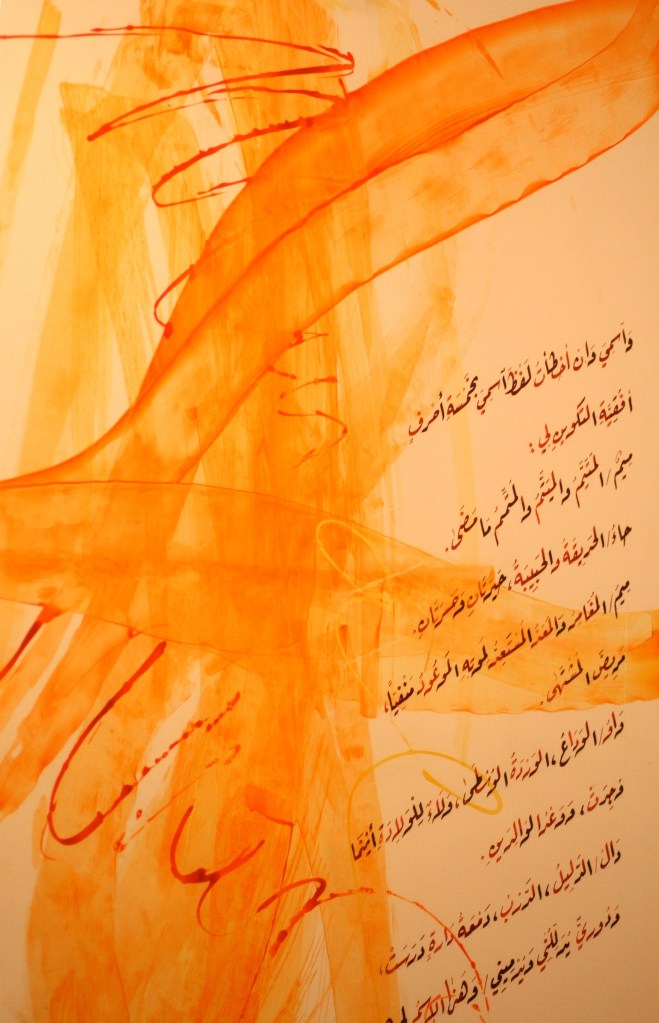 وَاسمِيَ وَان أخطأتُ لَفْظَ اسمِيَ بخَمْسَةِ أَحْرُفٍ
أفُقِيَّةِ التكوينِ لي :
ميمُ / المُتَيَّمُ والمُيَتَّمُ والمُتَمِّمُ مَا مَضَى.
حاءُ / الحَدِيقَةُ والحَبِيبَةُ، حَيرَتَانِ وَحَسرَتَانِ.
ميمُ / المُغَامِرُ وَالمُعَدُّ المُسْتَعِدُّ لمَوتِهِ المَوعُودِ مَنْفِيَّاً،
مَرِيضَ المُشْتَهَى.
وَاوُ / الوَدَاعُ، الوَرْدَةُ الوُسْطَى، وَلَاءٌ لِلْوِلَادَةِ أَيْنَمَا
وُجِدَتْ، وَوَعْدُ الوَالِدَينِ.
دَالُ / الدَّلِيلُ، الدَّرْبُ، دَمْعَةُ دَارَةٍ دَرَسَتْ،
وَدُورِيٌّ يُدَلِّلُنِي وَيُدْمِينِي / وَهَذَا الاِسْمُ لي